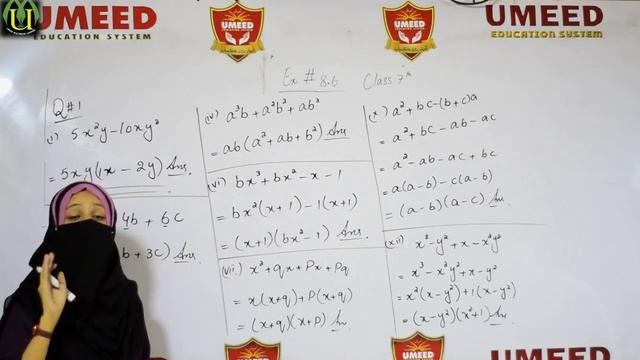 UMEED
EDUCATION SYSTEM
UMEED
UMEED
UMEED
EDUCATION SYSTEM
Ex # 8.6 Class 7th
Q#1
(i) 5x²y - 10xy²
= 5xy(1x - 2y) Ans.
4b + 6c
b + 3c) Ans.
(iv) a³b + a²b² + ab³
= ab(a² + ab + b²) Ans
(vi) bx³ + bx² - x - 1
= bx²(x+1) - 1(x+1)
= (x+1)(bx² - 1) Ans.
(viii) x² + qx + Px + Pq
= x(x+q) + P(x+q)
= (x+q)(x+P) An.
(x) a² + bc - (b+c)a
= a² + bc - ab - ac
= a² - ab - ac + bc
= a(a-b) - c(a-b)
= (a-b)(a-c) An.
(xii) x³ - y² + x - x²y²
= x³ - x²y² + x - y²
= x²(x-y²) + 1(x-y²)
= (x-y²)(x²+1) Ans.
UMEED
UMEED